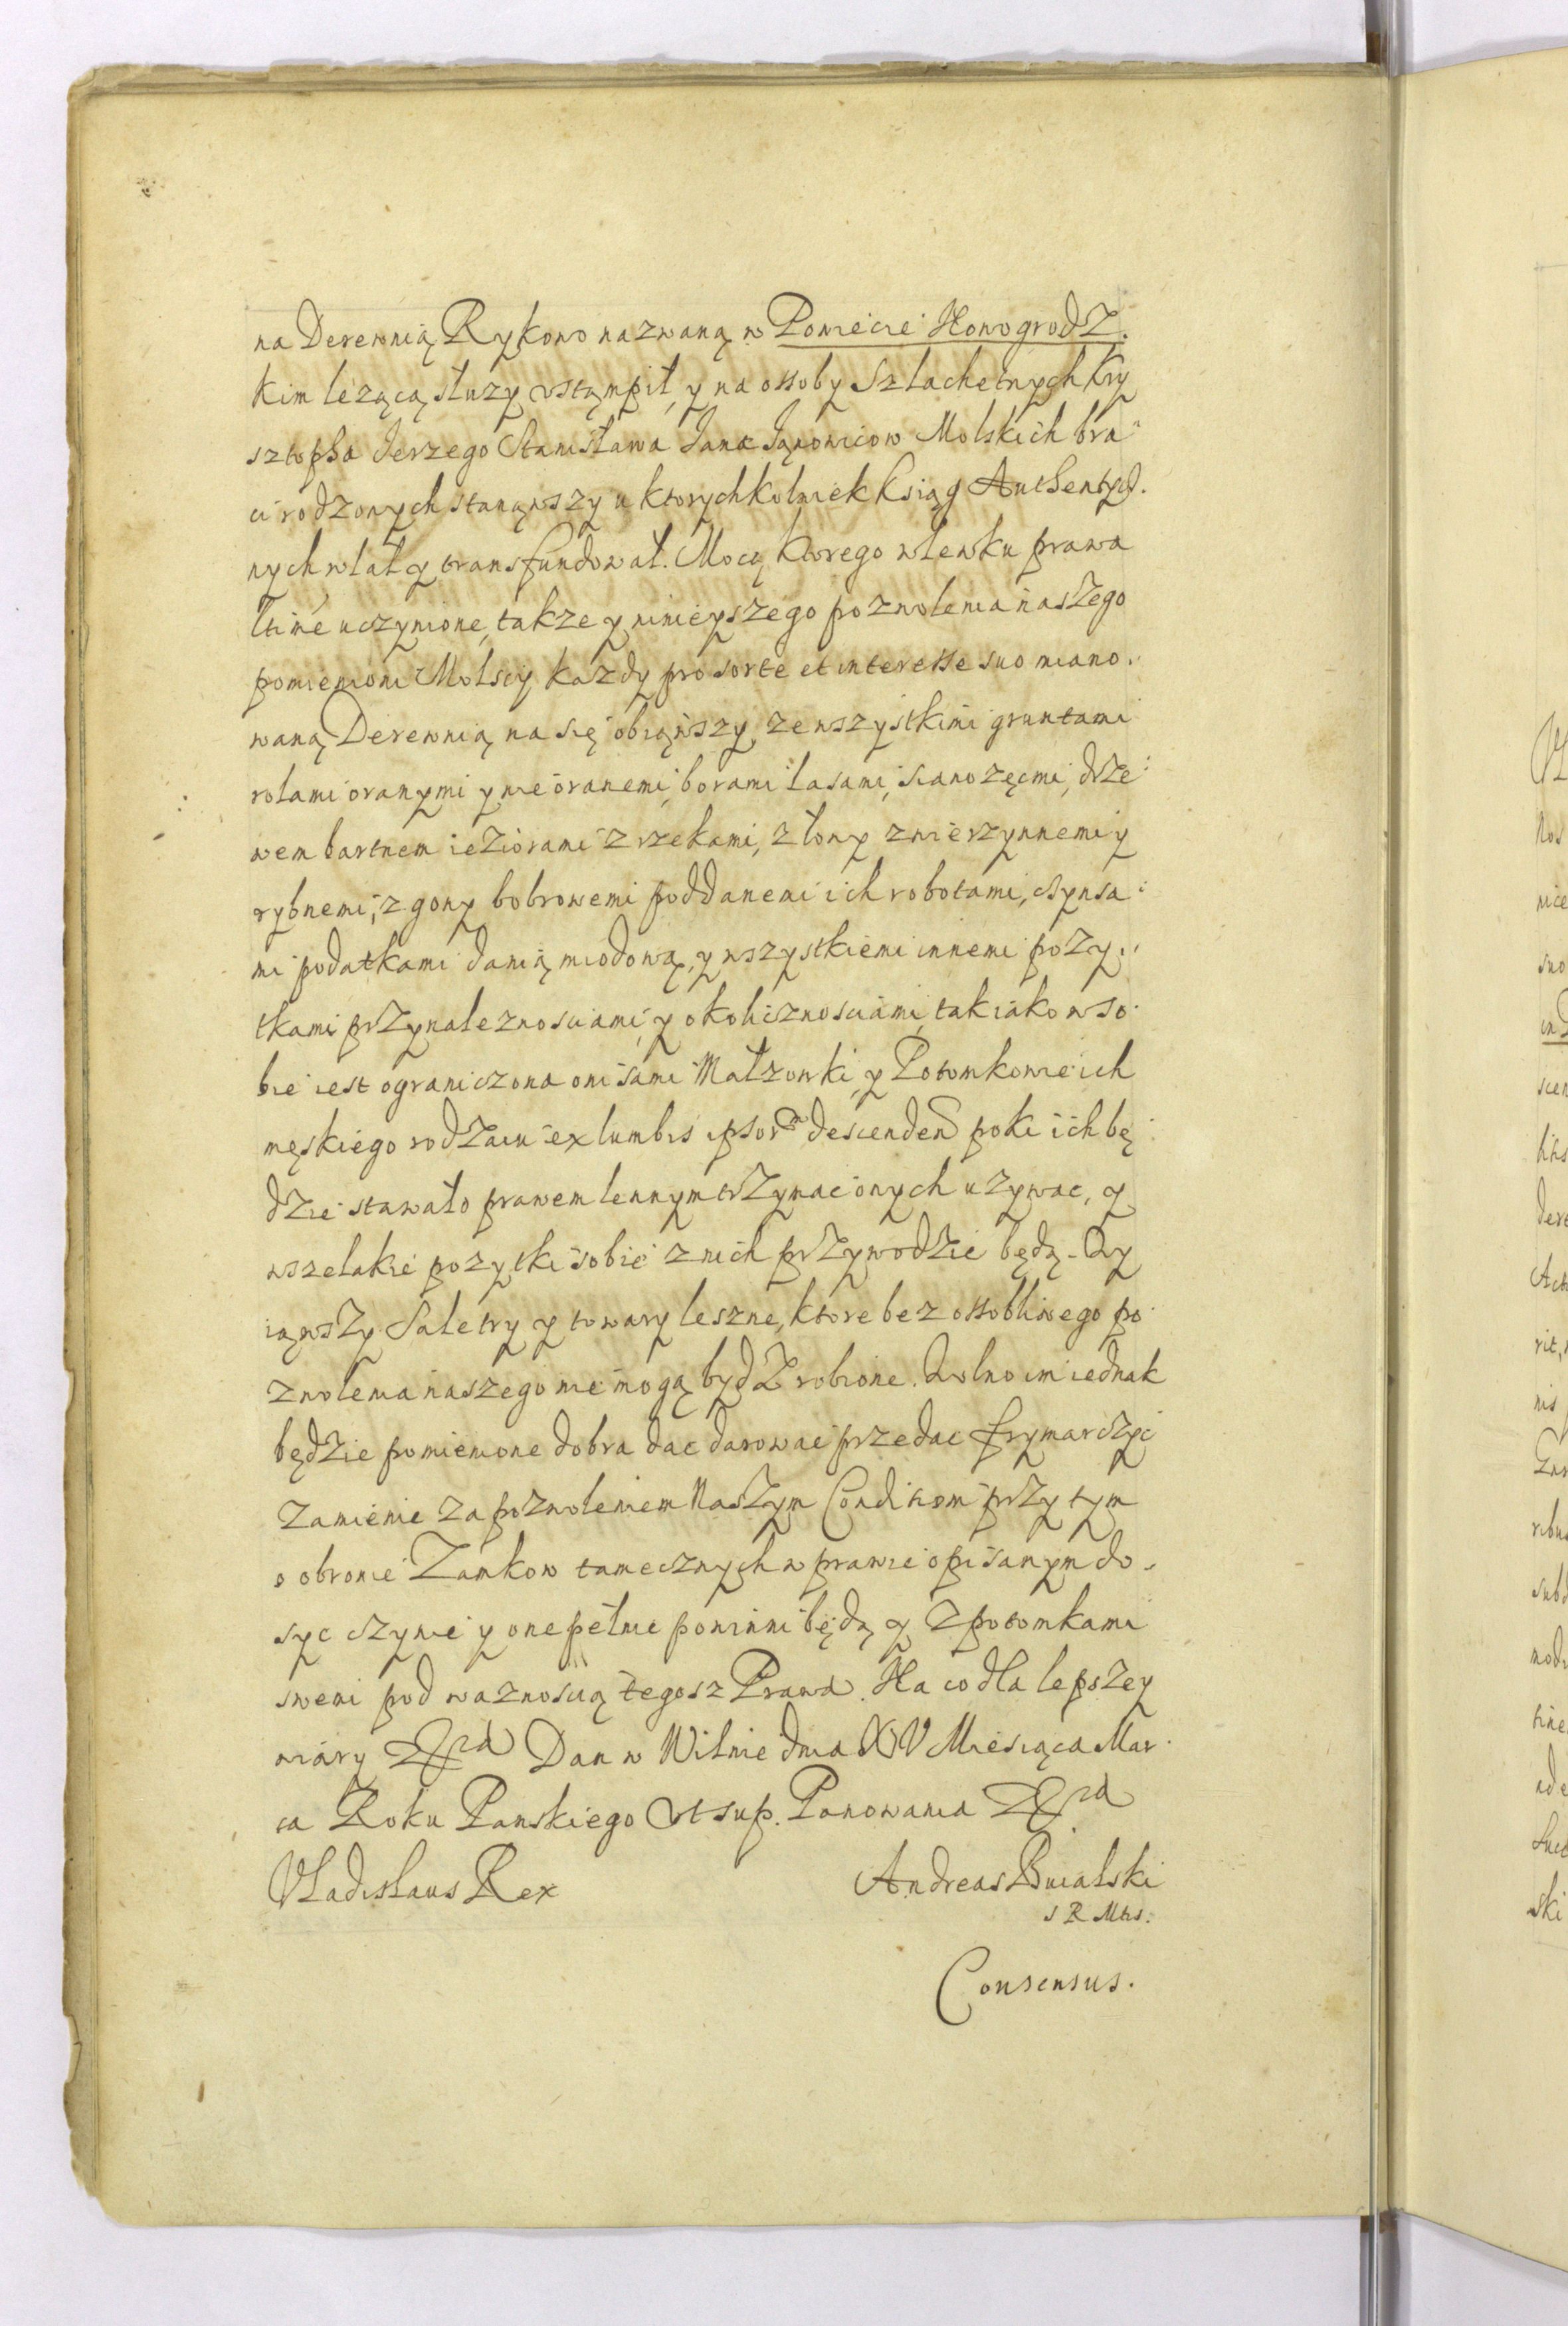 na Derewnią Rykowo nazwaną w Powiecie Nowogrodz.
kim lezącą słuzy ustąmpił, y na ossoby Szlachetnych Kry
sztopha Jerzego Stanisława Jana Janowicow Molskich bra
ci rodzonych stanąwszy u ktorychkolwiek Ksiąg Authentycz.
nych wlał y transfundował. Mocą ktorego wlewku prawa
uczynione, takze y ninieyszego pozwolenia naszego
pomienioni Molscy kazdy pro sorte et interesse suo miano.
waną Derewnią na się obiąwszy, ze wszystkimi gruntami
rolami oranymi y nieoranemi, borami lasami, sianozęcmi, drze
wem bartnem ieziorami z rzekami, z łowy zwierzynnemi y
rybnemi, z gony bobrowemi poddanemi ich robotami, czynsa
mi podatkami danią miodową, y wszystkiemi innemi pozy
tkami przynaleznosciami, y okolicznosciami, tak iako w so
bie iest ograniczona oni sami Małzonki, y Potomkowie ich
męskiego rodzaiu ex lumbis ipsor descenden poki ich bę
dzie stawało prawem lennym trzymac onych uzywac, y
wszelakie pozytki sobie z nich przywodzic będą. Wy
iąwszy Saletry y towary leszne, ktore bez ossobliwego po
zwolenia naszego nie mogą bydz robione. Wolno im iednak
będzie pomienione dobra dac darowac przedac frymarczyc
zamienic za pozwoleniem Naszym Conditiom przy tym
o obronie Zamkow tamecznych w prawie opisanym do
syc czynic y one pełnic powinni będą y z potomkami
swemi pod waznoscią tegosz Prawa. Na co dla lepszey
wiary Dan w Wilnie dnia XV Miesiąca Mar
ca Roku Panskiego Ut sup. Panowania
Vladislaus Rex
Andreas
S R Mtis.
Consensus.